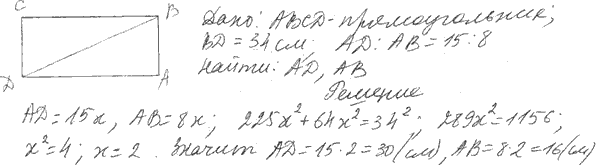 C B
Дано: ABCD - прямоугольник;
BD = 34 см; AD : AB = 15 : 8
Найти: AD, AB
D A
Решение
AD = 15x, AB = 8x; 225x² + 64x² = 34²; 289x² = 1156;
x² = 4; x = 2. Значит AD = 15·2 = 30 (см), AB = 8·2 = 16 (см)